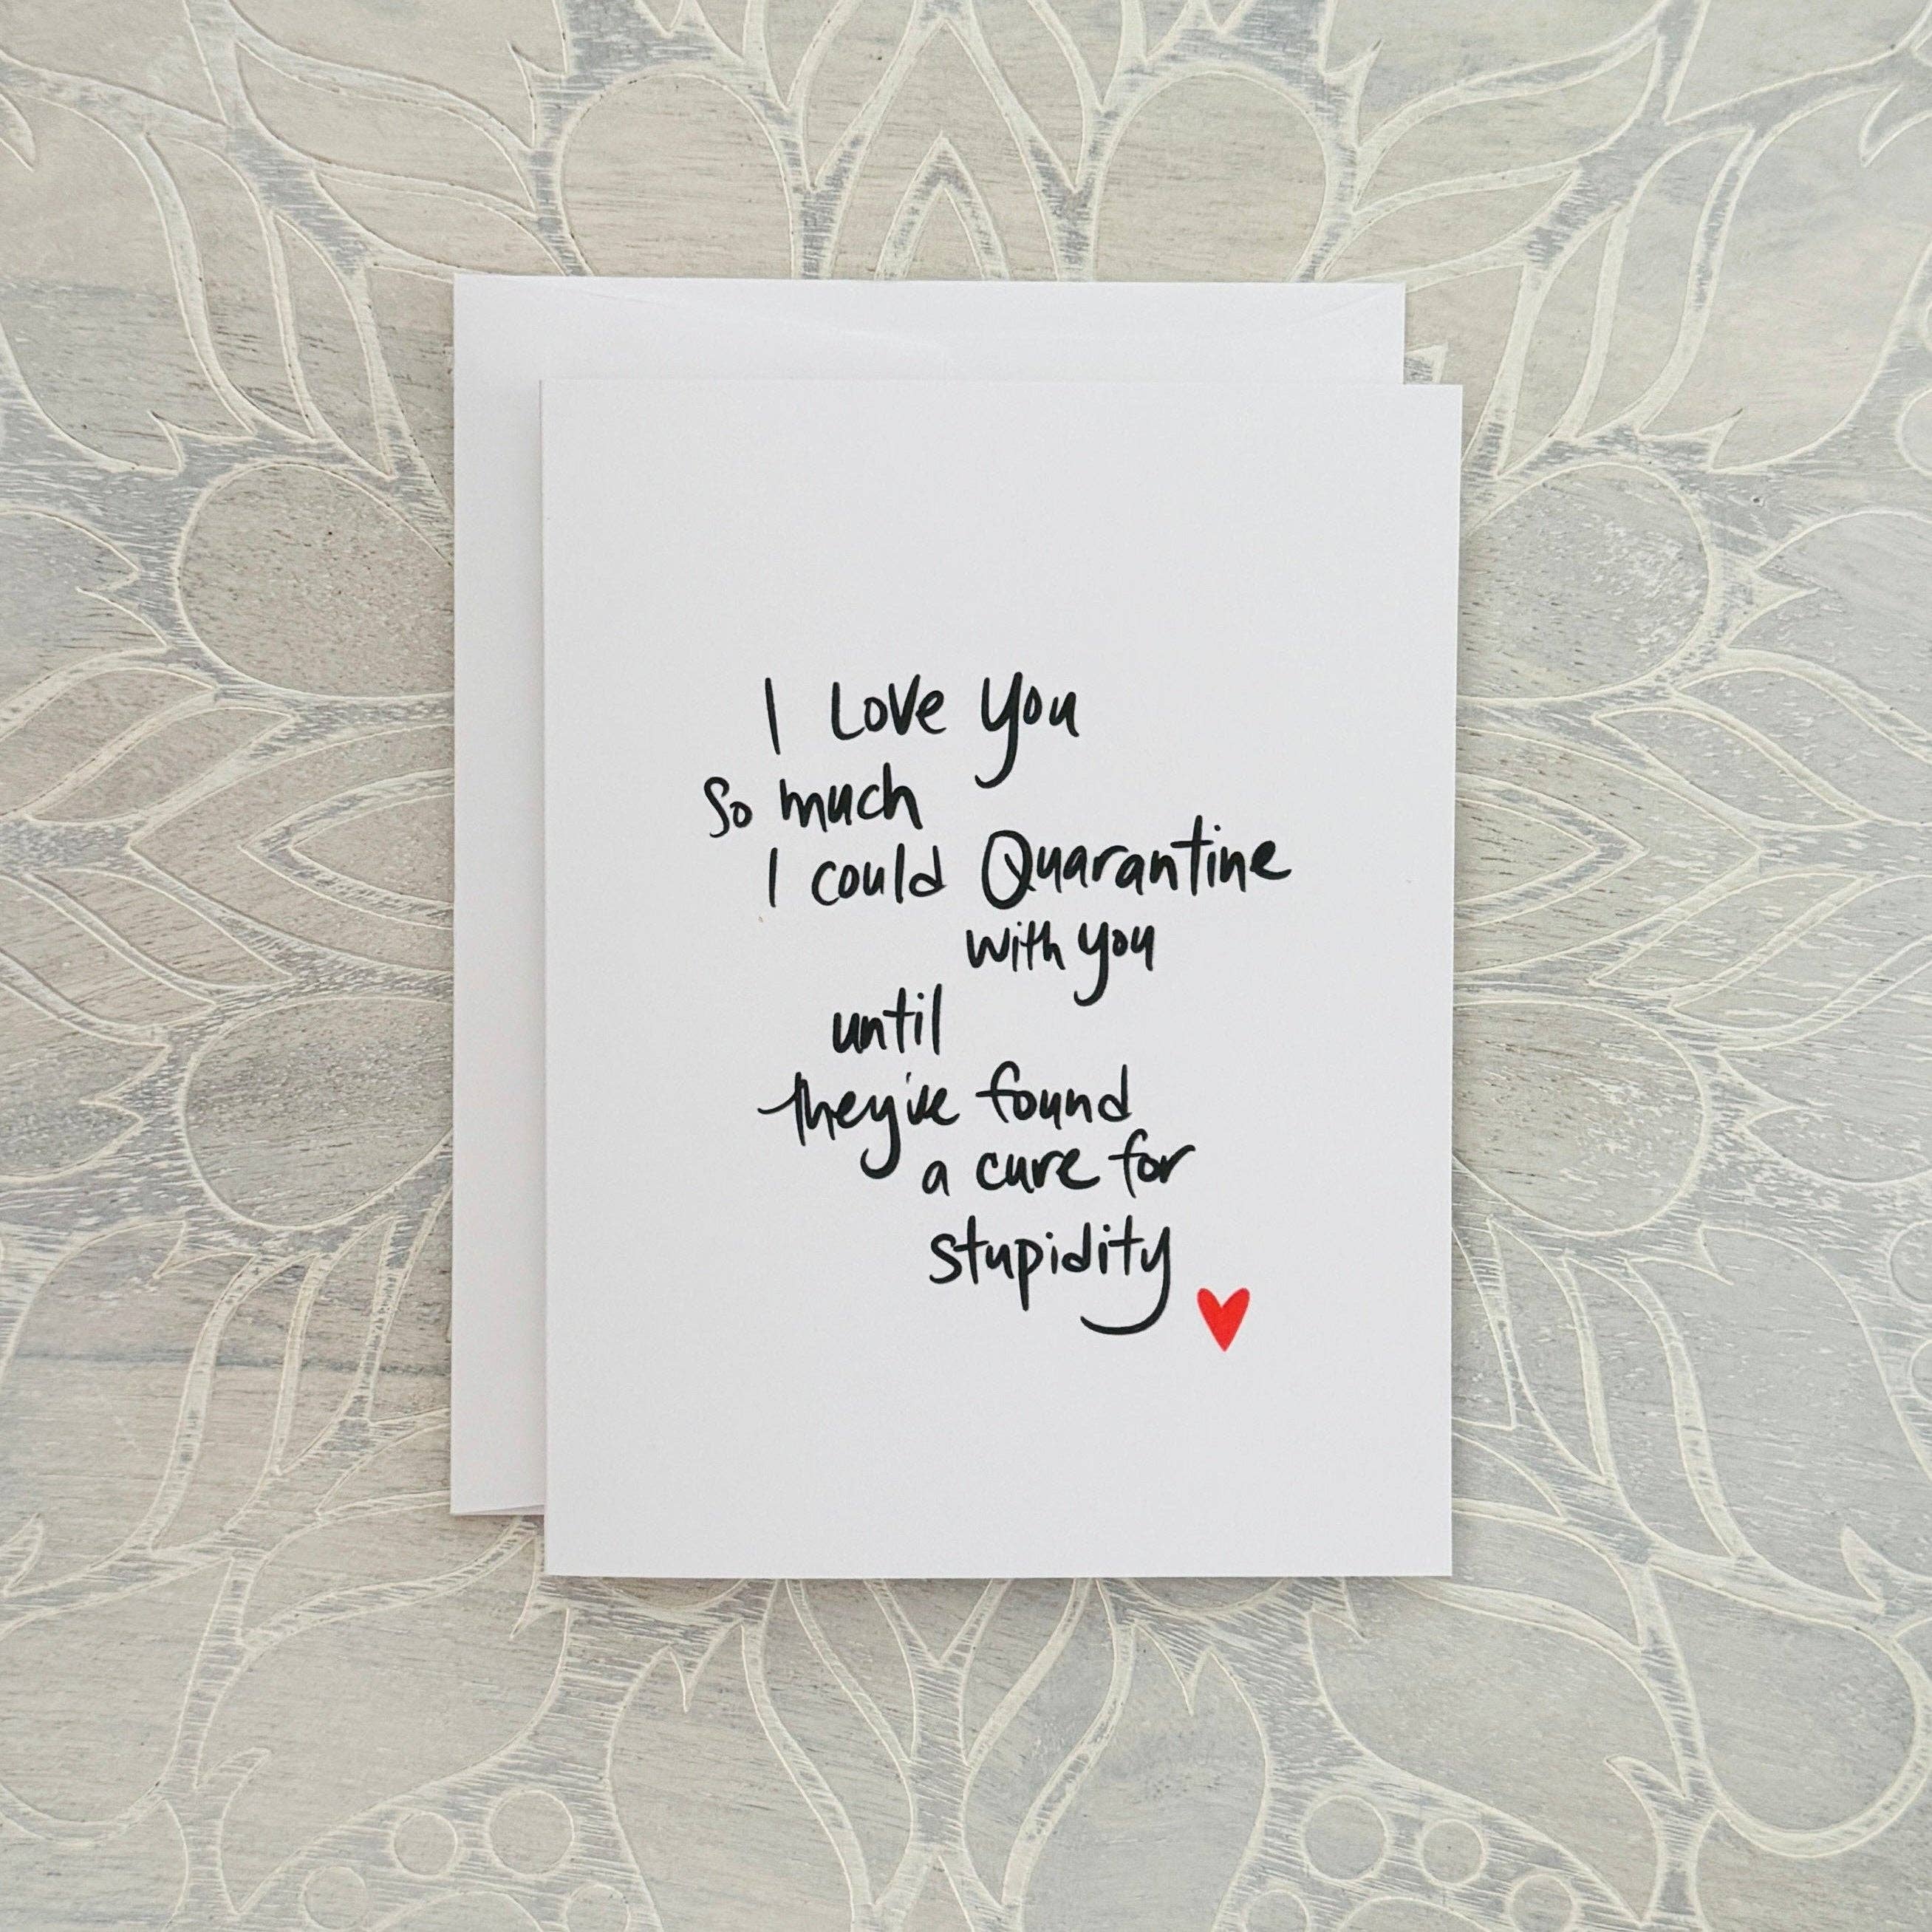 I Love you
So much
I could Quarantine
with you
until
they've found
a cure for
stupidity